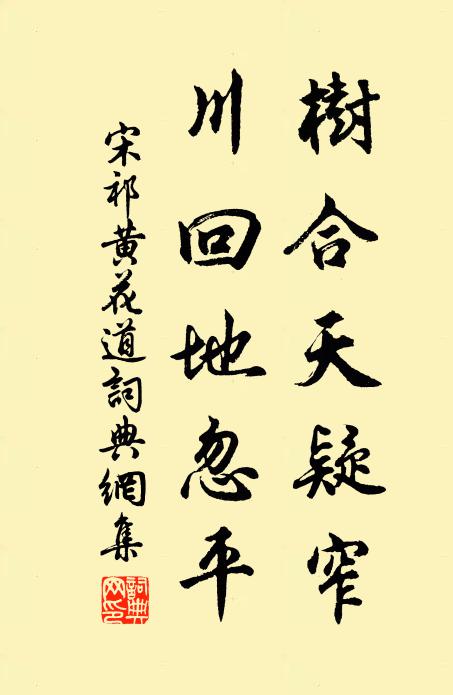 樹合天疑窄
川回地忽平
宋祁黃花道詞典網集
詞典網印